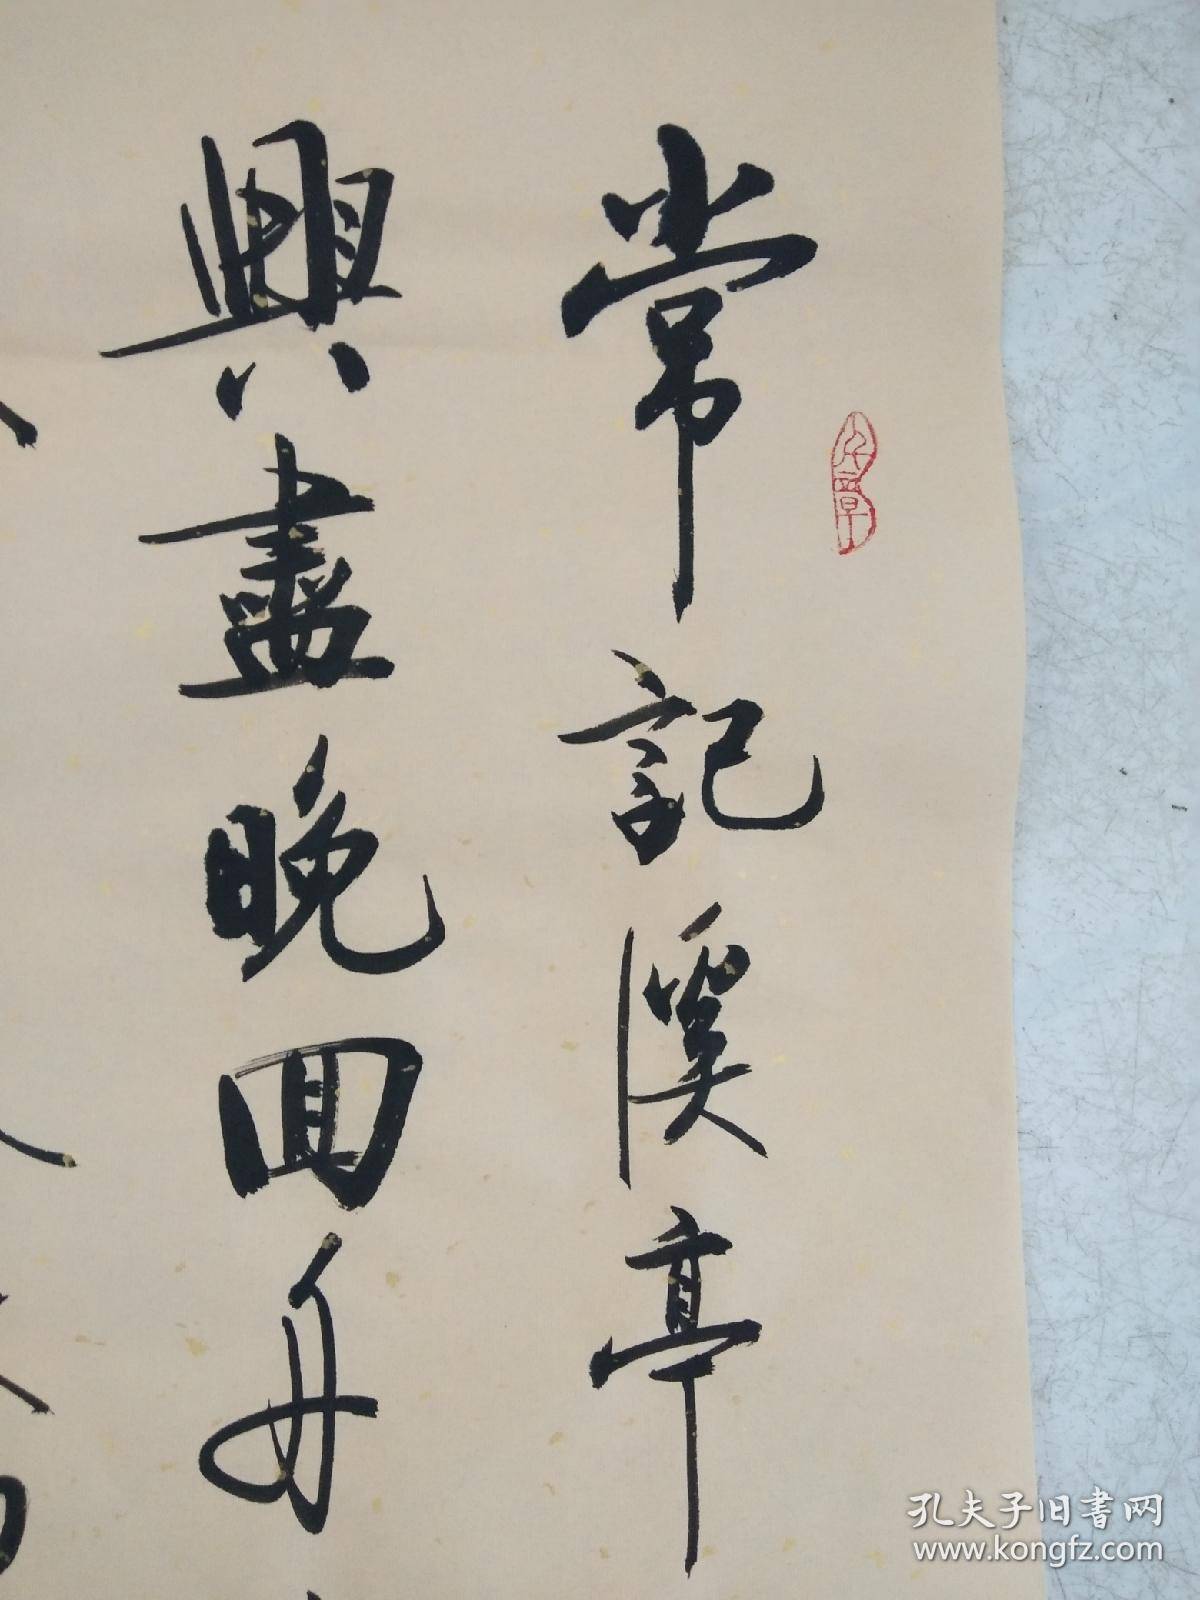 常記溪亭
興盡晚回舟
孔夫子旧書网
www.kongfz.com